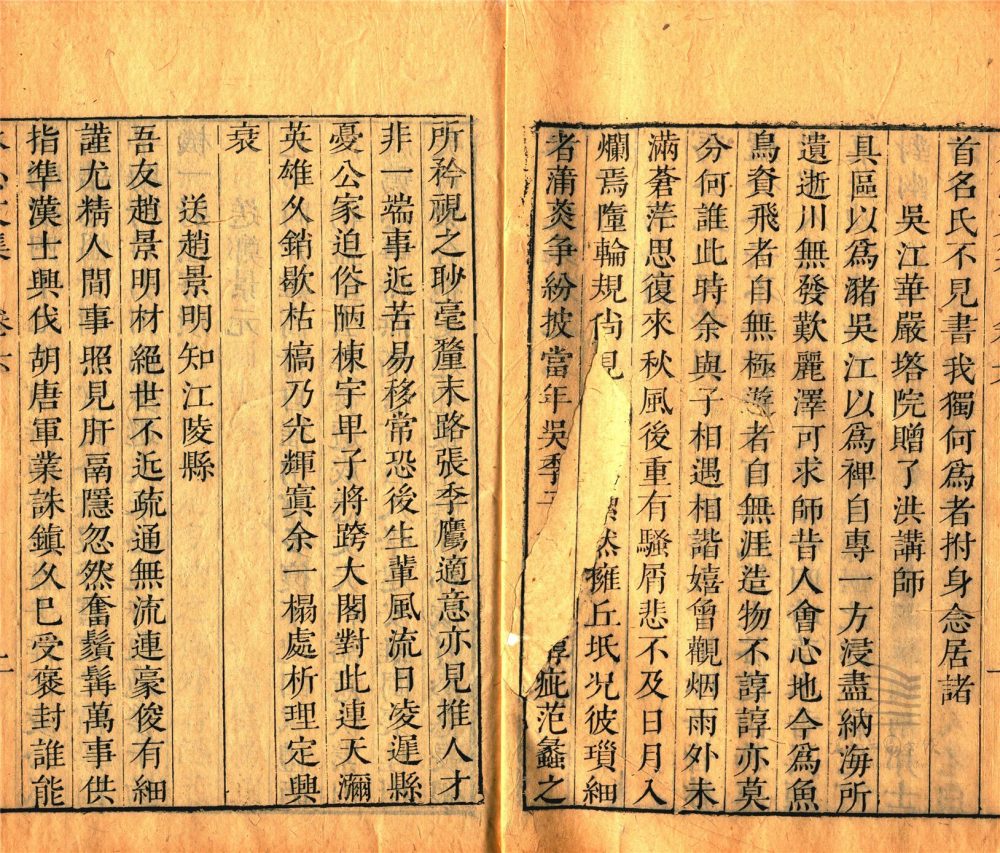 首名氏不見書我獨何爲者拊身念居諸
吳江華嚴塔院贈了洪講師
具區以爲豬吳江以爲裨自專一方浸盡納海所
遺逝川無發歎麗澤可求師昔人會心地今爲魚
鳥資飛者自無極游者自無涯造物不諄諄亦莫
分何誰此時余與子相遇相諧嬉曾觀烟雨外未
滿蒼茫思復來秋風後重有騷屑悲不及日月入
爛焉隨輪規尚見
然擁丘坻况彼瑣細
者蒲炎爭紛披當年吳季
疵范蠡之
所矜視之眇毫釐末路張季鷹適意亦見推人才
非一端事近苦易移常恐後生輩風流日凌遲縣
憂公家迫俗陋棟宇卑子將跨大閣對此連天瀰
英雄久銷歇枯槁乃光輝寘余一榻處析理定興
衰
送趙景明知江陵縣
吾友趙景明材絕世不近疏通無流連豪俊有細
謹尤精人間事照見肝鬲隱忽然奮鬚髯萬事供
指準漢士興伐胡唐軍業誅鎮久已受褒封誰能